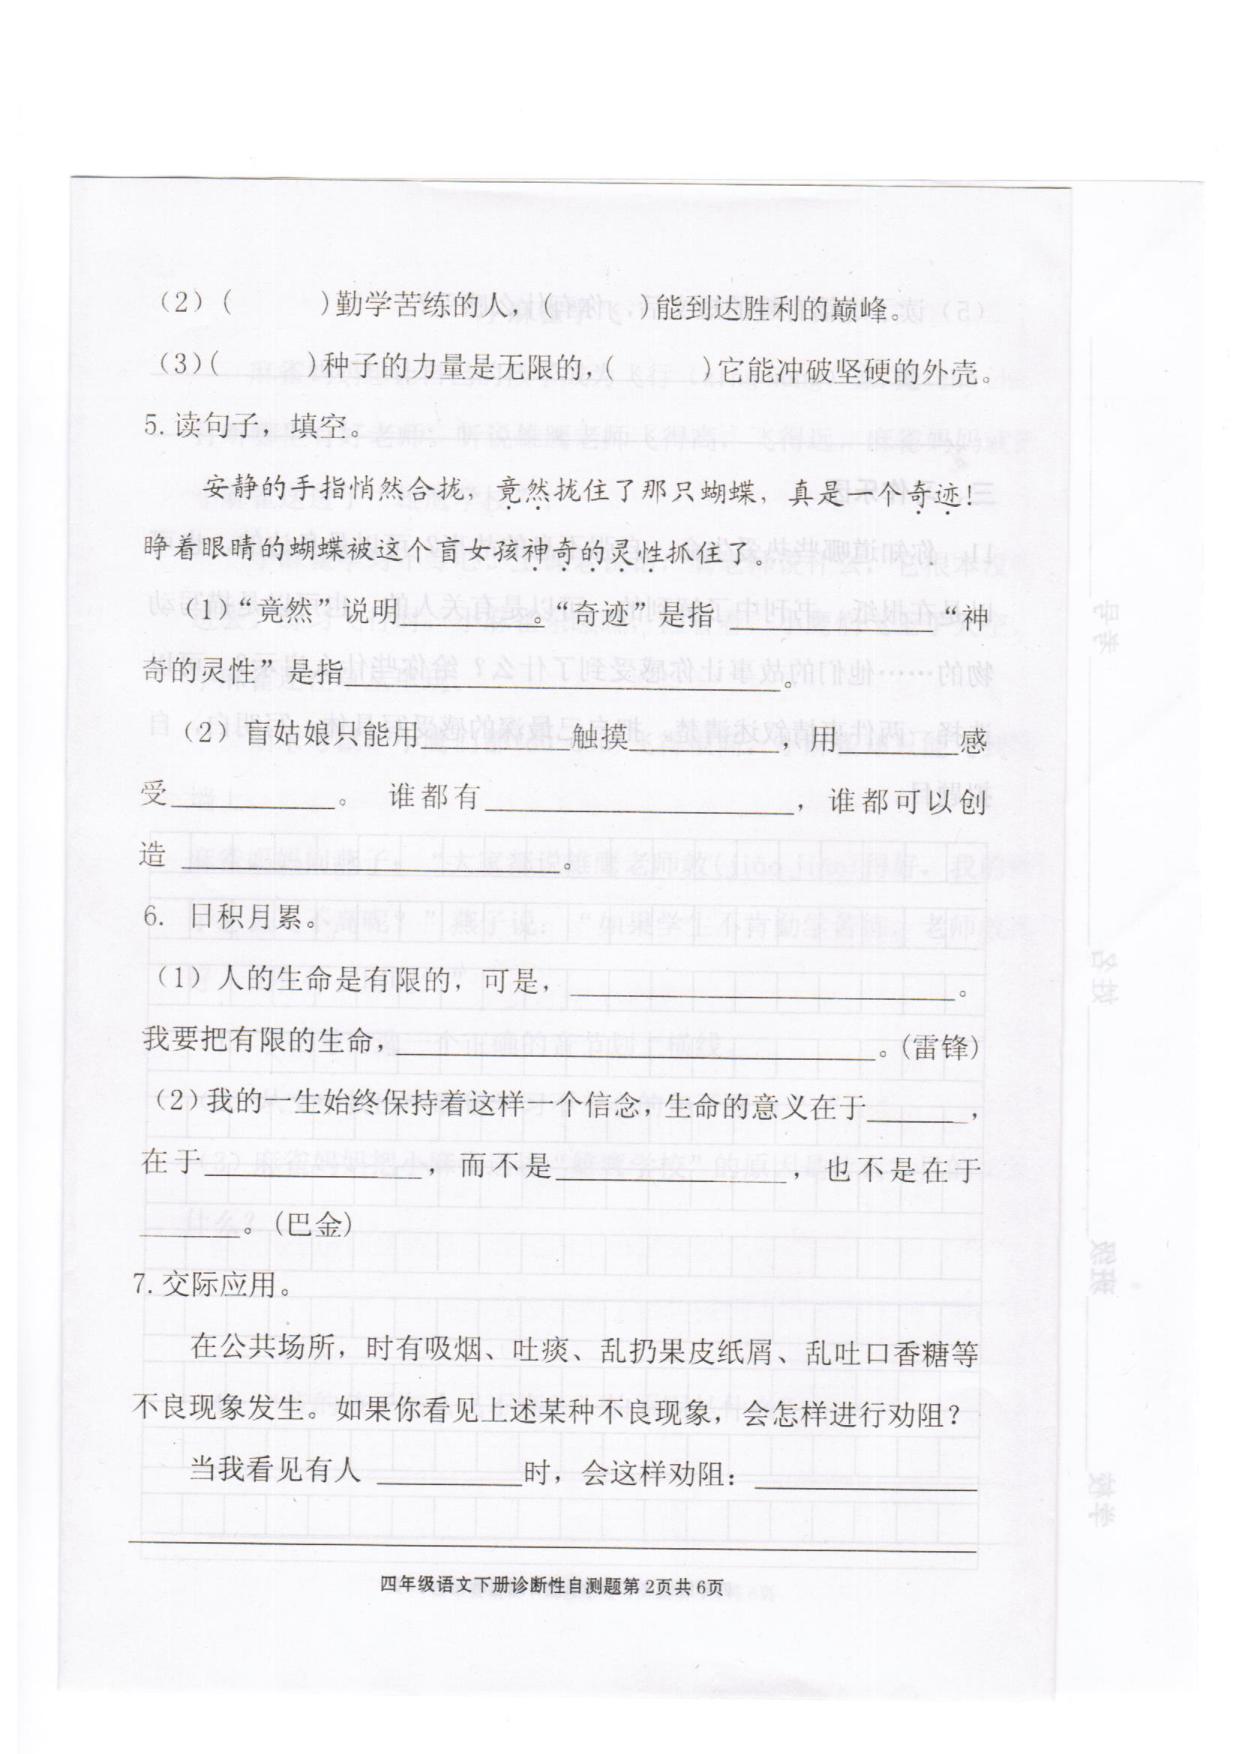 （2）(　　　)勤学苦练的人，(　　　)能到达胜利的巅峰。
（3）(　　　)种子的力量是无限的，(　　　)它能冲破坚硬的外壳。
5. 读句子，填空。
安静的手指悄然合拢，竟然拢住了那只蝴蝶，真是一个奇迹！
睁着眼睛的蝴蝶被这个盲女孩神奇的灵性抓住了。
（1）“竟然”说明__________。“奇迹”是指 ______________ “神
奇的灵性”是指______________________________。
（2）盲姑娘只能用__________触摸__________，用________感
受___________。 谁都有_____________________，谁都可以创
造 __________________________。
6. 日积月累。
（1）人的生命是有限的，可是，__________________________。
我要把有限的生命，________________________________。(雷锋)
（2）我的一生始终保持着这样一个信念，生命的意义在于_______，
在于_______________，而不是________________，也不是在于
_______。(巴金)
7. 交际应用。
在公共场所，时有吸烟、吐痰、乱扔果皮纸屑、乱吐口香糖等
不良现象发生。如果你看见上述某种不良现象，会怎样进行劝阻？
当我看见有人 __________时，会这样劝阻：_______________
四年级语文下册诊断性自测题第 2页共 6页